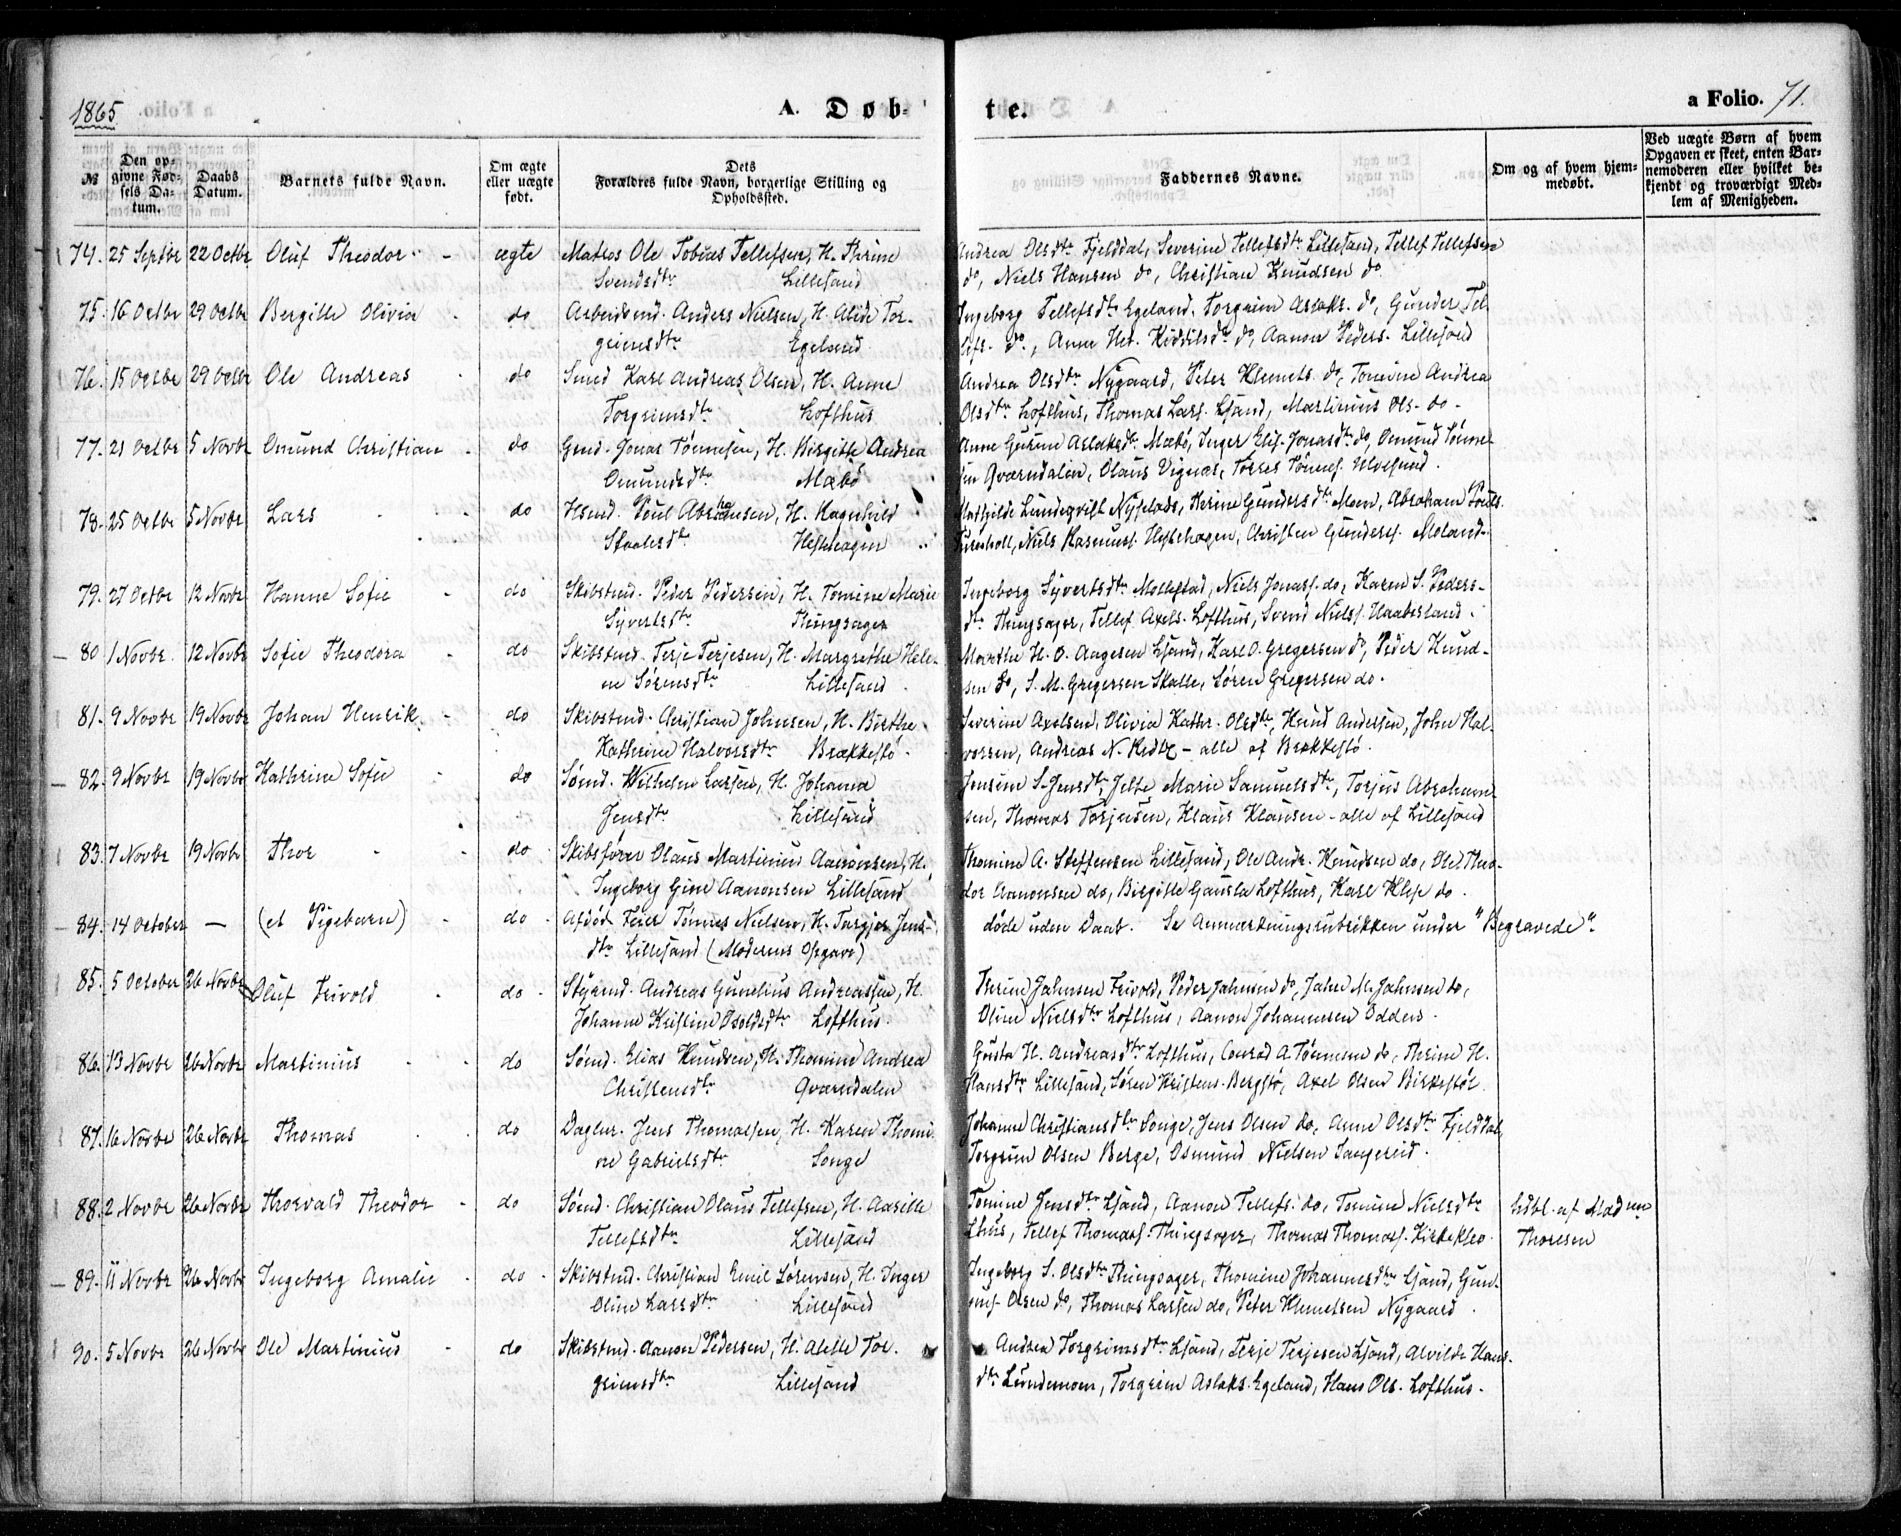 1865
A. Døb-
№
Den op-
givne Fød-
sels Da-
tum.
Daabs
Datum.
Barnets fulde Navn.
Om ægte
eller uægte
født.
Dets
Forældres fulde Navn, borgerlige Stilling og
Opholdssted.
te.
a Folio. 71.
Faddernes Navne.
Om og af hvem hjem-
medøbt.
Ved uægte Børn af hvem
Opgaven er skeet, enten Bar-
nemoderen eller hvilket be-
kjendt og troværdigt Med-
lem af Menigheden.
74. 25 Septbr 22 Octbr Oluf Theodor - ægte Matros Ole Tobias Tellefsen, H. Thrine
Svendsdtr Lillesand
Andrea Olsdtr Fjelddal, Severine Tellefsdtr Lillesand, Tellef Tellefsen
do, Niels Hansen do, Christian Knudsen do
75. 16 Octbr 29 Octbr Bergitte Olivia - do Arbeidsmd. Anders Nielsen, H. Alide Tor-
geimsdtr Egeland
Ingeborg Tellefsdtr Egeland, Torgrim Aslaks. do, Gunder Tel-
lefs. do, Anne Kiddilsdtr do, Aanon Peders. Lillesand
76. 15 Octbr 29 Octbr Ole Andreas - do Smed Karl Andreas Olsen, H. Anne
Torgrimsdtr Lofthus
Andrea Olsdtr Nygaard, Peter Klemets. do, Tomine Andrea
Olsdtr Lofthus, Thomas Lars. Lsand, Martinius Ols. do -
77. 21 Octbr 5 Novbr Omund Christian - do Gmd. Jonas Tønnesen, H. Birgitte Andrea
Omundsdtr Mæbø
Anne Gurine Aslaksdtr Mæbø, Inger Elis. Jonasdtr do, Omund Tønne-
sen Qværndalen, Olaus Vignæs, Torres Tønnes. Ulvesund.
78. 25 Octbr 5 Novbr Lars - do Hsmd. Poul Abrahamsen, H. Ragnhild
Staalesdtr Hestehagen
Mathilde Lundeqvist Nygelads, Kirine Gundersdtr Moen, Abraham Pouls.
Niels Rasmuss. Hestehagen, Christen Gunders. Moland.
79. 27 Octbr 12 Novbr Hanne Sofie - do Skibstmd. Peder Pedersen, H. Tomine Marie
Syvertsdtr Thingsager
Ingeborg Syvertsdtr Mollestad, Niels Jonass. do, Karen S. Peders-
dtr Thingsager, Tellef Axels. Lofthus, Svend Niels. Haabesland.
80 1 Novbr. 12 Novbr Sofie Theodora - do Skibstmd. Terje Terjesen, H. Margrethe Hele-
ne Sørensdtr Lillesand
Marethe H. O. Aagesen Lsand, Karl O. Gregersen do, Peder Knud-
sen do, S. M. Gregersen Skalle, Søren Gregersen do.
81. 9 Novbr 19 Novbr Johan Henrik. - do Skibstmd. Christian Johnsen, H. Birthe
Kathrine Halvorsdtr Brækkestø.
Severine Axelsen, Olivia Kathr. Olsdtr, Knud Andersen, John Hal-
vorsen, Andreas N. - alle af Brækkestø.
82. 9 Novbr 19 Novbr Kathrine Sofie - do Sømd. Wilhelm Larsen, H. Johanna
Jensdtr Lillesand
Jensine S. Jensdtr, Jette Marie Samuelsdtr, Torjus Abraham-
sen, Thomas Torjusen, Klaus Klausen - alle af Lillesand
83. 7 Novbr 19 Novbr Thor - do Skibsfører Olaus Martinius Aanonsen, H.
Ingeborg Gine Aanonsen Lillesand
Thomine A. Steffensen Lillesand, Ole Andr. Knudsen do, Ole Theo-
dor Aanonsen do, Birgitte Gausta Lofthus, Karl Kleje do.
84. 14 October - (et Pigebarn) - do Afdød Feier Tønnes Nielsen, H. Torgjer Jens-
dtr Lillesand (Moderens Opgave)
døde uden Daab. Se Anmærkningsrubrikken under "Begravede".
85. 5 October 26 Novbr Oluf Frivold - do Styrmd. Andreas Gunelius Andreassen, H.
Johanne Kristine Osoldsdtr Lofthus.
Thrine Jahnsen Frivold, Peder Jahnsen do, Jahn M. Jahnsen do,
Oline Nielsdtr Lofthus, Aanon Johannesen Odders.
86. 13 Novbr 26 Novbr Martinius - do Sømd. Elias Knudsen, H. Thomine Andrea
Christensdtr Qværndalen
Gusta H. Andreasdtr Lofthus, Conrad A. Tønnesen do, Thrine H.
Hansdtr Lillesand, Søren Kristens. Bergstø, Axel Olsen Birkestøl
87. 16 Novbr 26 Novbr Thomas - do Daglnr. Jens Thomassen, H. Karen Thomi
ne Gabrielsdtr Songe
Johanne Christiansdtr Songe, Jens Olsen do, Anne Olsdtr Fjelddal,
Torgrim Olsen Berge, Osmund Nielsen Sangereid.
88. 2 Novbr 26 Novbr Thorvald Theodor - do Sømd. Christian Olaus Tellefsen, H. Aasille
Tellefsdtr Lillesand
Tomine Jensdtr Lsand, Aanon Tellefs. do, Tomine Nielsdtr
Lhus, Tellef Thomass. Thingsager, Thomas Thomass. Kirkekleo.
Hdbt. af Mad m
Thoresen
89. 11 Novbr 26 Novbr Ingeborg Amalie - do Skibstmd. Christian Emil Sørensen, H. Inger
Oline Larsdtr Lillesand
Ingeborg S. Olsdtr Thingsager, Thomine Johannesdtr Lsand, Gun-
nuf Olsen do, Thomas Larsen do, Peter Klemetsen Nygaard.
90. 5 Novbr 26 Novbr Ole Martinius - do Skibstmd. Aanon Pedersen, H. Alette Tor-
grimsdtr Lillesand
Andrea Torgrimsdtr Lsand, Terje Terjesen Lsand, Alvilde Hans-
dtr Lundemoen, Torgrim Aslaks. Egeland, Hans Ols. Lofthus.